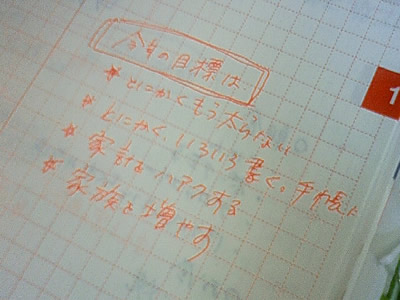 今年の目標は
★ とにかくもう太らない
★ とにかく、いろいろ書く。手帳に
★ 家計をハアクする
★ 家族を増やす
1